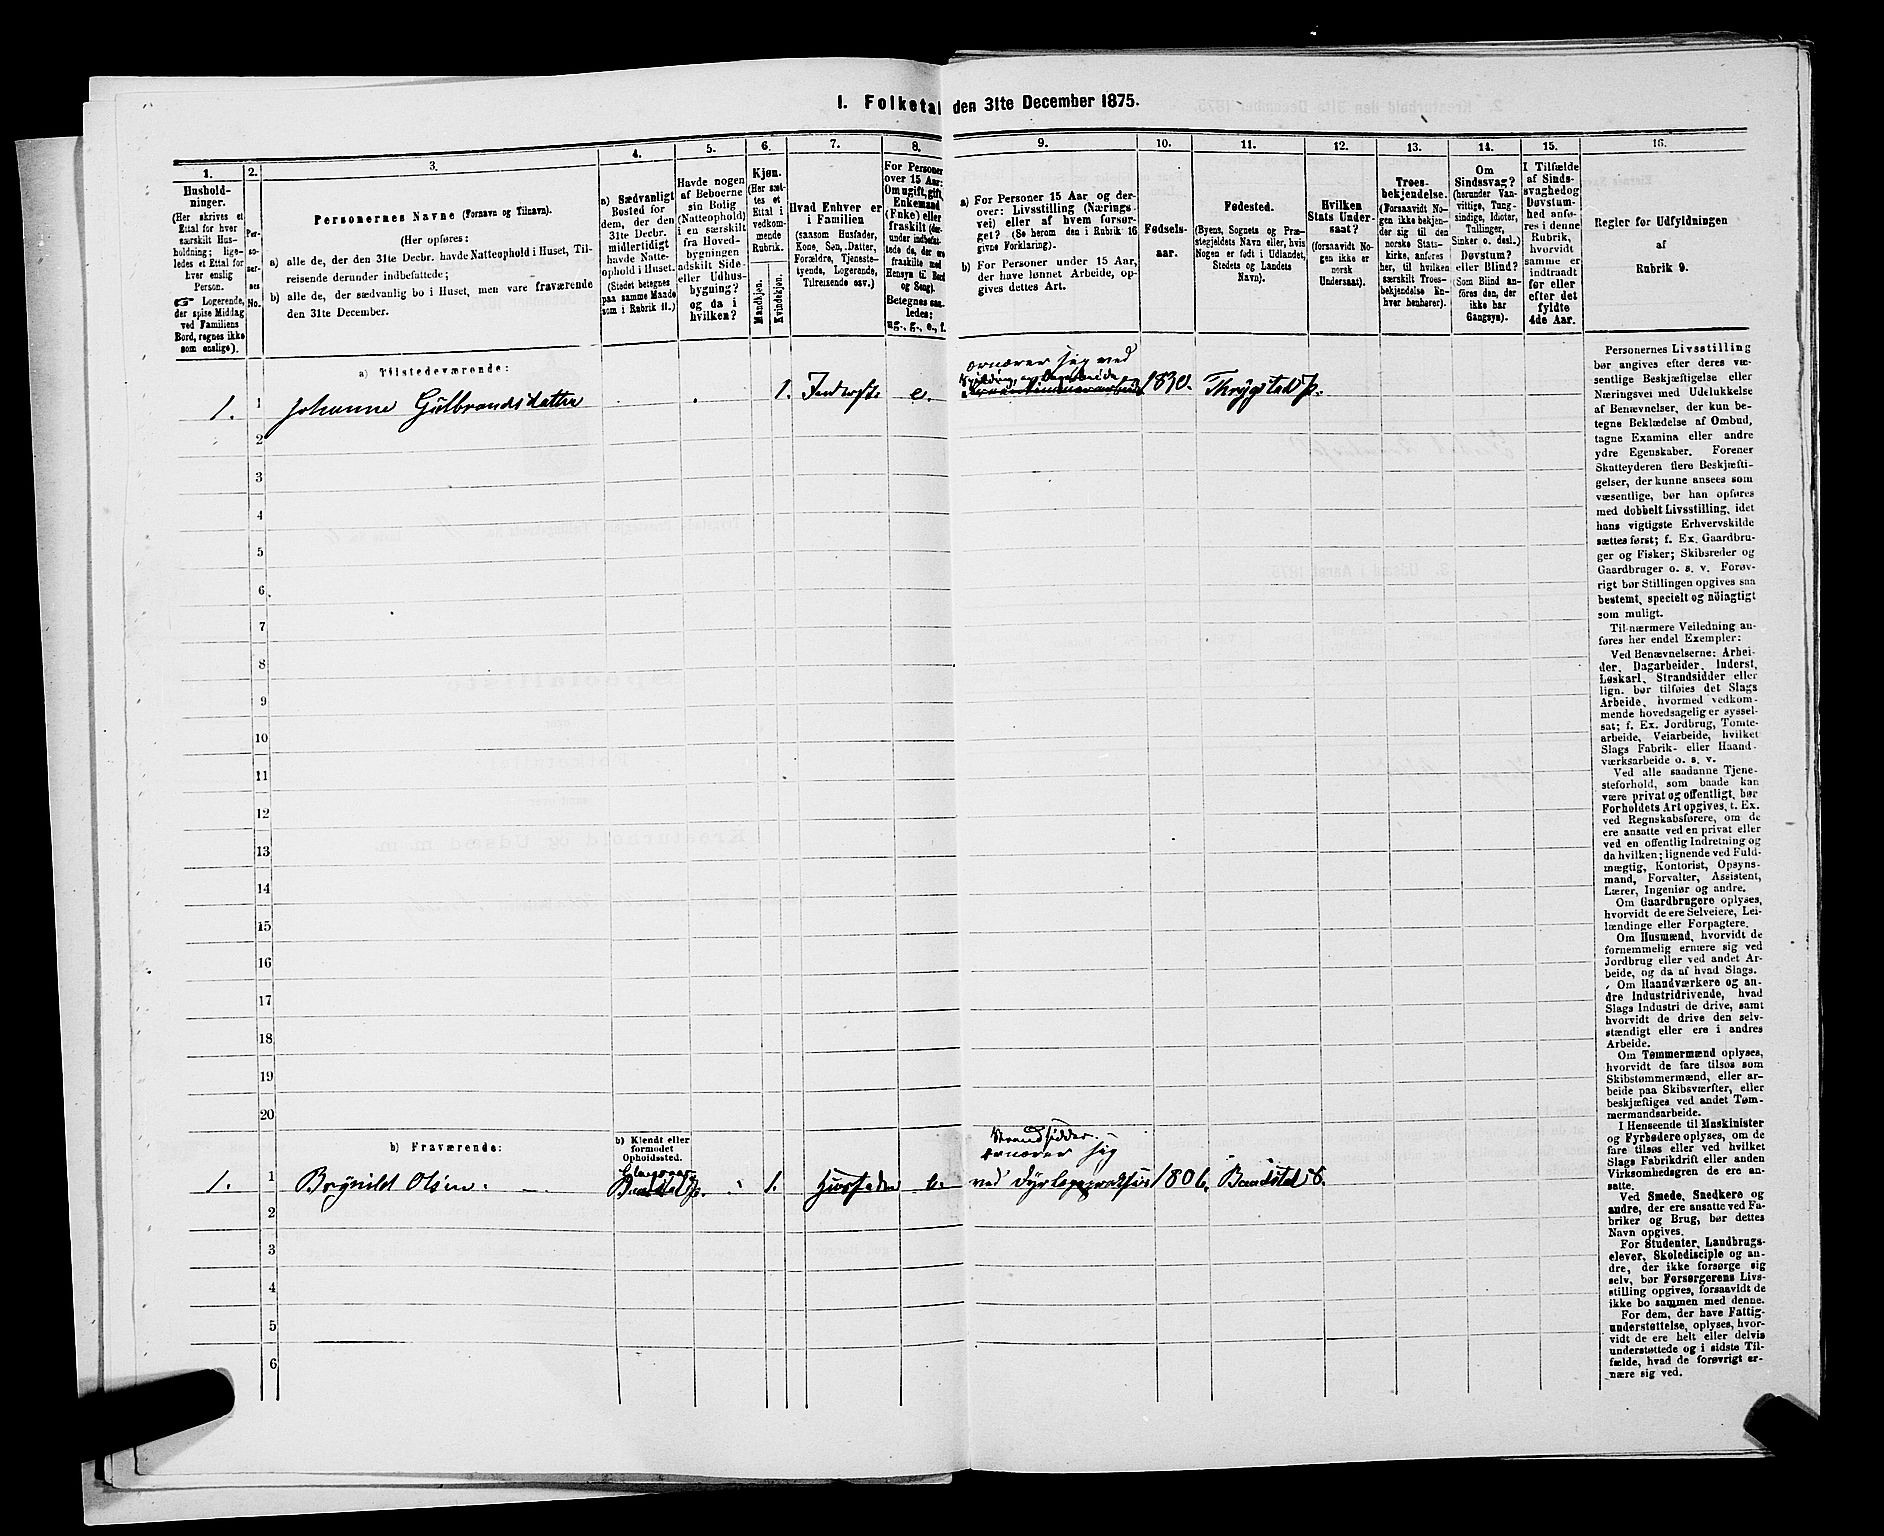 I. Folketal den 31te December 1875.
1.
Hushold-
ninger.
(Her skrives et
Ettal for hver
særskilt Hus-
holdning; lige-
ledes et Ettal for
hver enslig
Person.
Logerende,
der spise Middag
ved Familiens
Bord, regnes ikke
som enslige).
2.
Per-
so-
ner-
nes
No.
3.
Personernes Navne (Fornavn og Tilnavn).
(Her opføres:
a) alle de, der den 31te Decbr. havde Natteophold i Huset, Til-
reisende derunder indbefattede;
b) alle de, der sædvanlig bo i Huset, men vare fraværende
den 31te December.
4.
a) Sædvanligt
Bosted for
dem, der den
31te Decbr.
midlertidigt
havde Natte-
ophold i Huset.
(Stedet betegnes
paa samme Maade
som i Rubrik 11.)
5.
Havde nogen
af Beboerne
sin Bolig
(Natteophold)
i en særskilt
fra Hoved-
bygningen
adskilt Side-
eller Udhus-
bygning?
og da i
hvilken?
6.
Kjøn.
(Her sæt-
tes et
Ettal i
vedkom-
mende
Rubrik.
Mandkjøn.
Kvindekjøn.
7.
Hvad Enhver er
i Familien
(saasom Husfader,
Kone, Søn, Datter,
Forældre, Tjeneste-
tyende, Logerende,
Tilreisende osv.)
8.
For Personer
over 15 Aar:
Om ugift, gift,
Enkemand
(Enke) eller
fraskilt (der-
under indbefat-
tede de, der ere
fraskilte med
Hensyn til Bord
og Seng).
Betegnes saa-
ledes:
ug., g., e., f.
9.
a) For Personer 15 Aar og der-
over: Livsstilling (Nærings-
vei) eller af hvem forsør-
get? (Se herom den i Rubrik 16
givne Forklaring).
b) For Personer under 15 Aar,
der have lønnet Arbeide, op-
gives dettes Art.
10.
Fødsels-
aar.
11.
Fødested.
(Byens, Sognets og Præ-
stegjeldets Navn eller, hvis
Nogen er født i Udlandet,
Stedets og Landets
Navn).
12.
Hvilken
Stats Under-
saat?
(forsaavidt No-
gen ikke er
norsk
Undersaat).
13.
Troes-
bekjendelse.
(Forsaavidt No-
gen ikke bekjen-
der sig til den
norske Stats-
kirke, anføres
her, til hvilken
særskilt Troes-
bekjendelse En-
hver henhører).
14.
Om
Sindssvag?
(herunder Van-
vittige, Tung-
sindige, Idioter,
Tullinger,
Sinker o. desl.)
Døvstum?
eller Blind?
(Som Blind an-
føres den, der
ikke har
Gangsyn).
15.
I Tilfælde
af Sinds-
svaghed og
Døvstum-
hed anfø-
res i denne
Rubrik,
hvorvidt
samme er
indtraadt
før eller
efter det
fyldte
4de Aar.
16.
Regler for Udfyldningen
af
Rubrik 9.
a) Tilstedeværende:
ernærer sig ved
1. 1 Johanne Gulbrandsdatter 1. Inderst e. 1830. Thrygstad Pr.
2
3
4
5
6
7
8
9
10
11
12
13
14
15
16
17
18
19
20
b) Fraværende:
b) Kjendt eller
formodet
Opholdssted.
Strandsidder
ernærer sig
1. 1 Brynild Olsen. 1. Husfader ved Dyrlægepraksis 1806.
2
3
4
5
6
Personernes Livsstilling
bør angives efter deres væ-
sentlige Beskjæftigelse eller
Næringsvei med Udelukkelse
af Benævnelser, der kun be-
tegne Beklædelse af Ombud,
tagne Examina eller andre
ydre Egenskaber. Forener
Skatteyderen flere Beskjæfti-
gelser, der kunne ansees som
væsentlige, bør han opføres
med dobbelt Livsstilling, idet
hans vigtigste Erhvervskilde
sættes først; f. Ex. Gaardbru-
ger og Fisker; Skibsreder og
Gaardbruger o. s. v. Forøv-
rigt bør Stillingen opgives saa
bestemt, specielt og nöiagtigt
som muligt.
Til nærmere Veiledning an-
føres her endel Exempler:
Ved Benævnelserne: Arbei-
der, Dagarbeider, Inderst,
Løskarl, Strandsidder eller
lign. bør tilføies det Slags
Arbeide, hvormed vedkom-
mende hovedsagelig er syssel-
sat; f. Ex. Jordbrug, Tomte-
arbeide, Veiarbeide, hvilket
Slags Fabrik- eller Haand-
værksarbeide o. s. v.
Ved alle saadanne Tjene-
steforhold, som baade kan
være privat og offentligt, bør
Forholdets Art opgives, t. Ex.
ved Regnskabsførere, om de
ere ansatte ved en privat eller
ved en offentlig Indretning og
da hvilken; lignende ved Fuld-
mægtig, Kontorist, Opsyns-
mand, Forvalter, Assistent,
Lærer, Ingeniør og andre.
Om Gaardbrugere oplyses,
hvorvidt de ere Selveiere, Lei-
lændinge eller Forpagtere.
Om Husmænd, hvorvidt de
fornemmelig ernære sig ved
Jordbrug eller ved andet Ar-
beide, og da af hvad Slags.
Om Haandværkere og an-
dre Industridrivende, hvad
Slags Industri de drive, samt
hvorvidt de drive den selv-
stændigt eller ere i andres
Arbeide.
Om Tømmermænd oplyses,
hvorvidt de fare tilsøs som
Skibstømmermænd, eller ar-
beide paa Skibsværfter, eller
beskjæftiges ved andet Tøm-
mermandsarbeide.
I Henseende til Maskinister
og Fyrbødere oplyses, om de
fare tilsøs eller ved hvilket
Slags Fabrikdrift eller anden
Virksomhedsgren de ere an-
satte.
Ved Smede, Snedkere og
andre, der ere ansatte ved Fa-
briker og Brug, bør dettes
Navn opgives.
For Studenter, Landbrugs-
elever, Skoledisciple og an-
dre, der ikke forsørge sig
selv, bør Forsørgerens Livs-
stilling opgives, forsaavidt de
ikke bo sammen med denne.
For dem, der have Fattig-
understøttelse, oplyses, hvor-
vidt de ere helt eller delvis
understøttede og i sidste Til-
fælde, hvad de forøvrigt er-
nære sig ved.